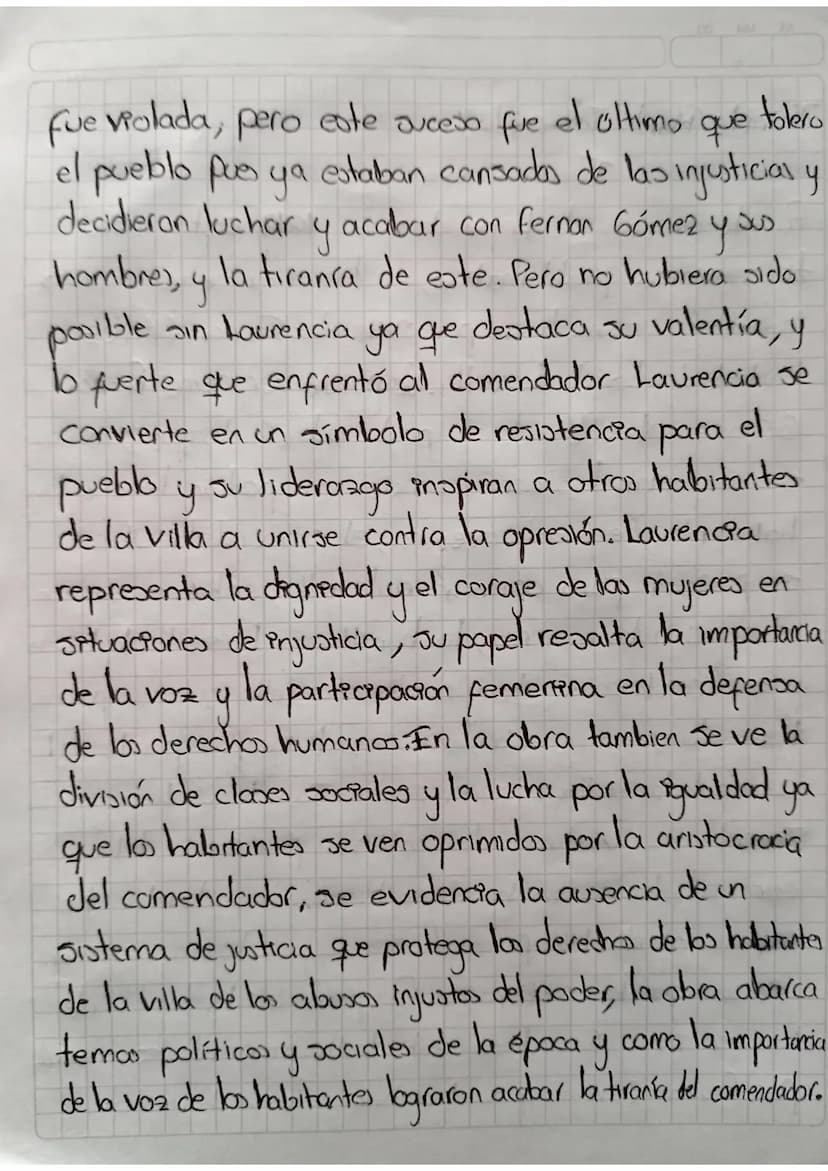 fue violada, pero este suceso fue el último que tolero
el pueblo pues ya estaban cansados de las injusticias y
decidieron luchar y acabar con Fernan Gómez y sus
hombres, y la tiranía de este. Pero no hubiera sido
posible sin Laurencia ya que destaca su valentía, y
lo fuerte que enfrentó al comendador Laurencia se
convierte en un símbolo de resistencia para el
pueblo y su liderazgo inspiran a otros habitantes
de la villa a unirse contra la opresión. Laurencia
representa la dignedad y el coraje de las mujeres en
situaciones de injusticia, su papel resalta la importancia
de la voz y la participación femenina en la defensa
de los derechos humanos. En la obra tambien se ve la
división de clases sociales y la lucha por la igualdad ya
que los habitantes se ven oprimidos por la aristocracia
del comendador, se evidencia la ausencia de un
sistema de justicia que protega los derechos de los habitantes
de la villa de los abusos injustos del poder, la obra abarca
temas políticos y sociales de la época y como la importancia
de la voz de los habitantes lograron acabar la tiranía del comendador.